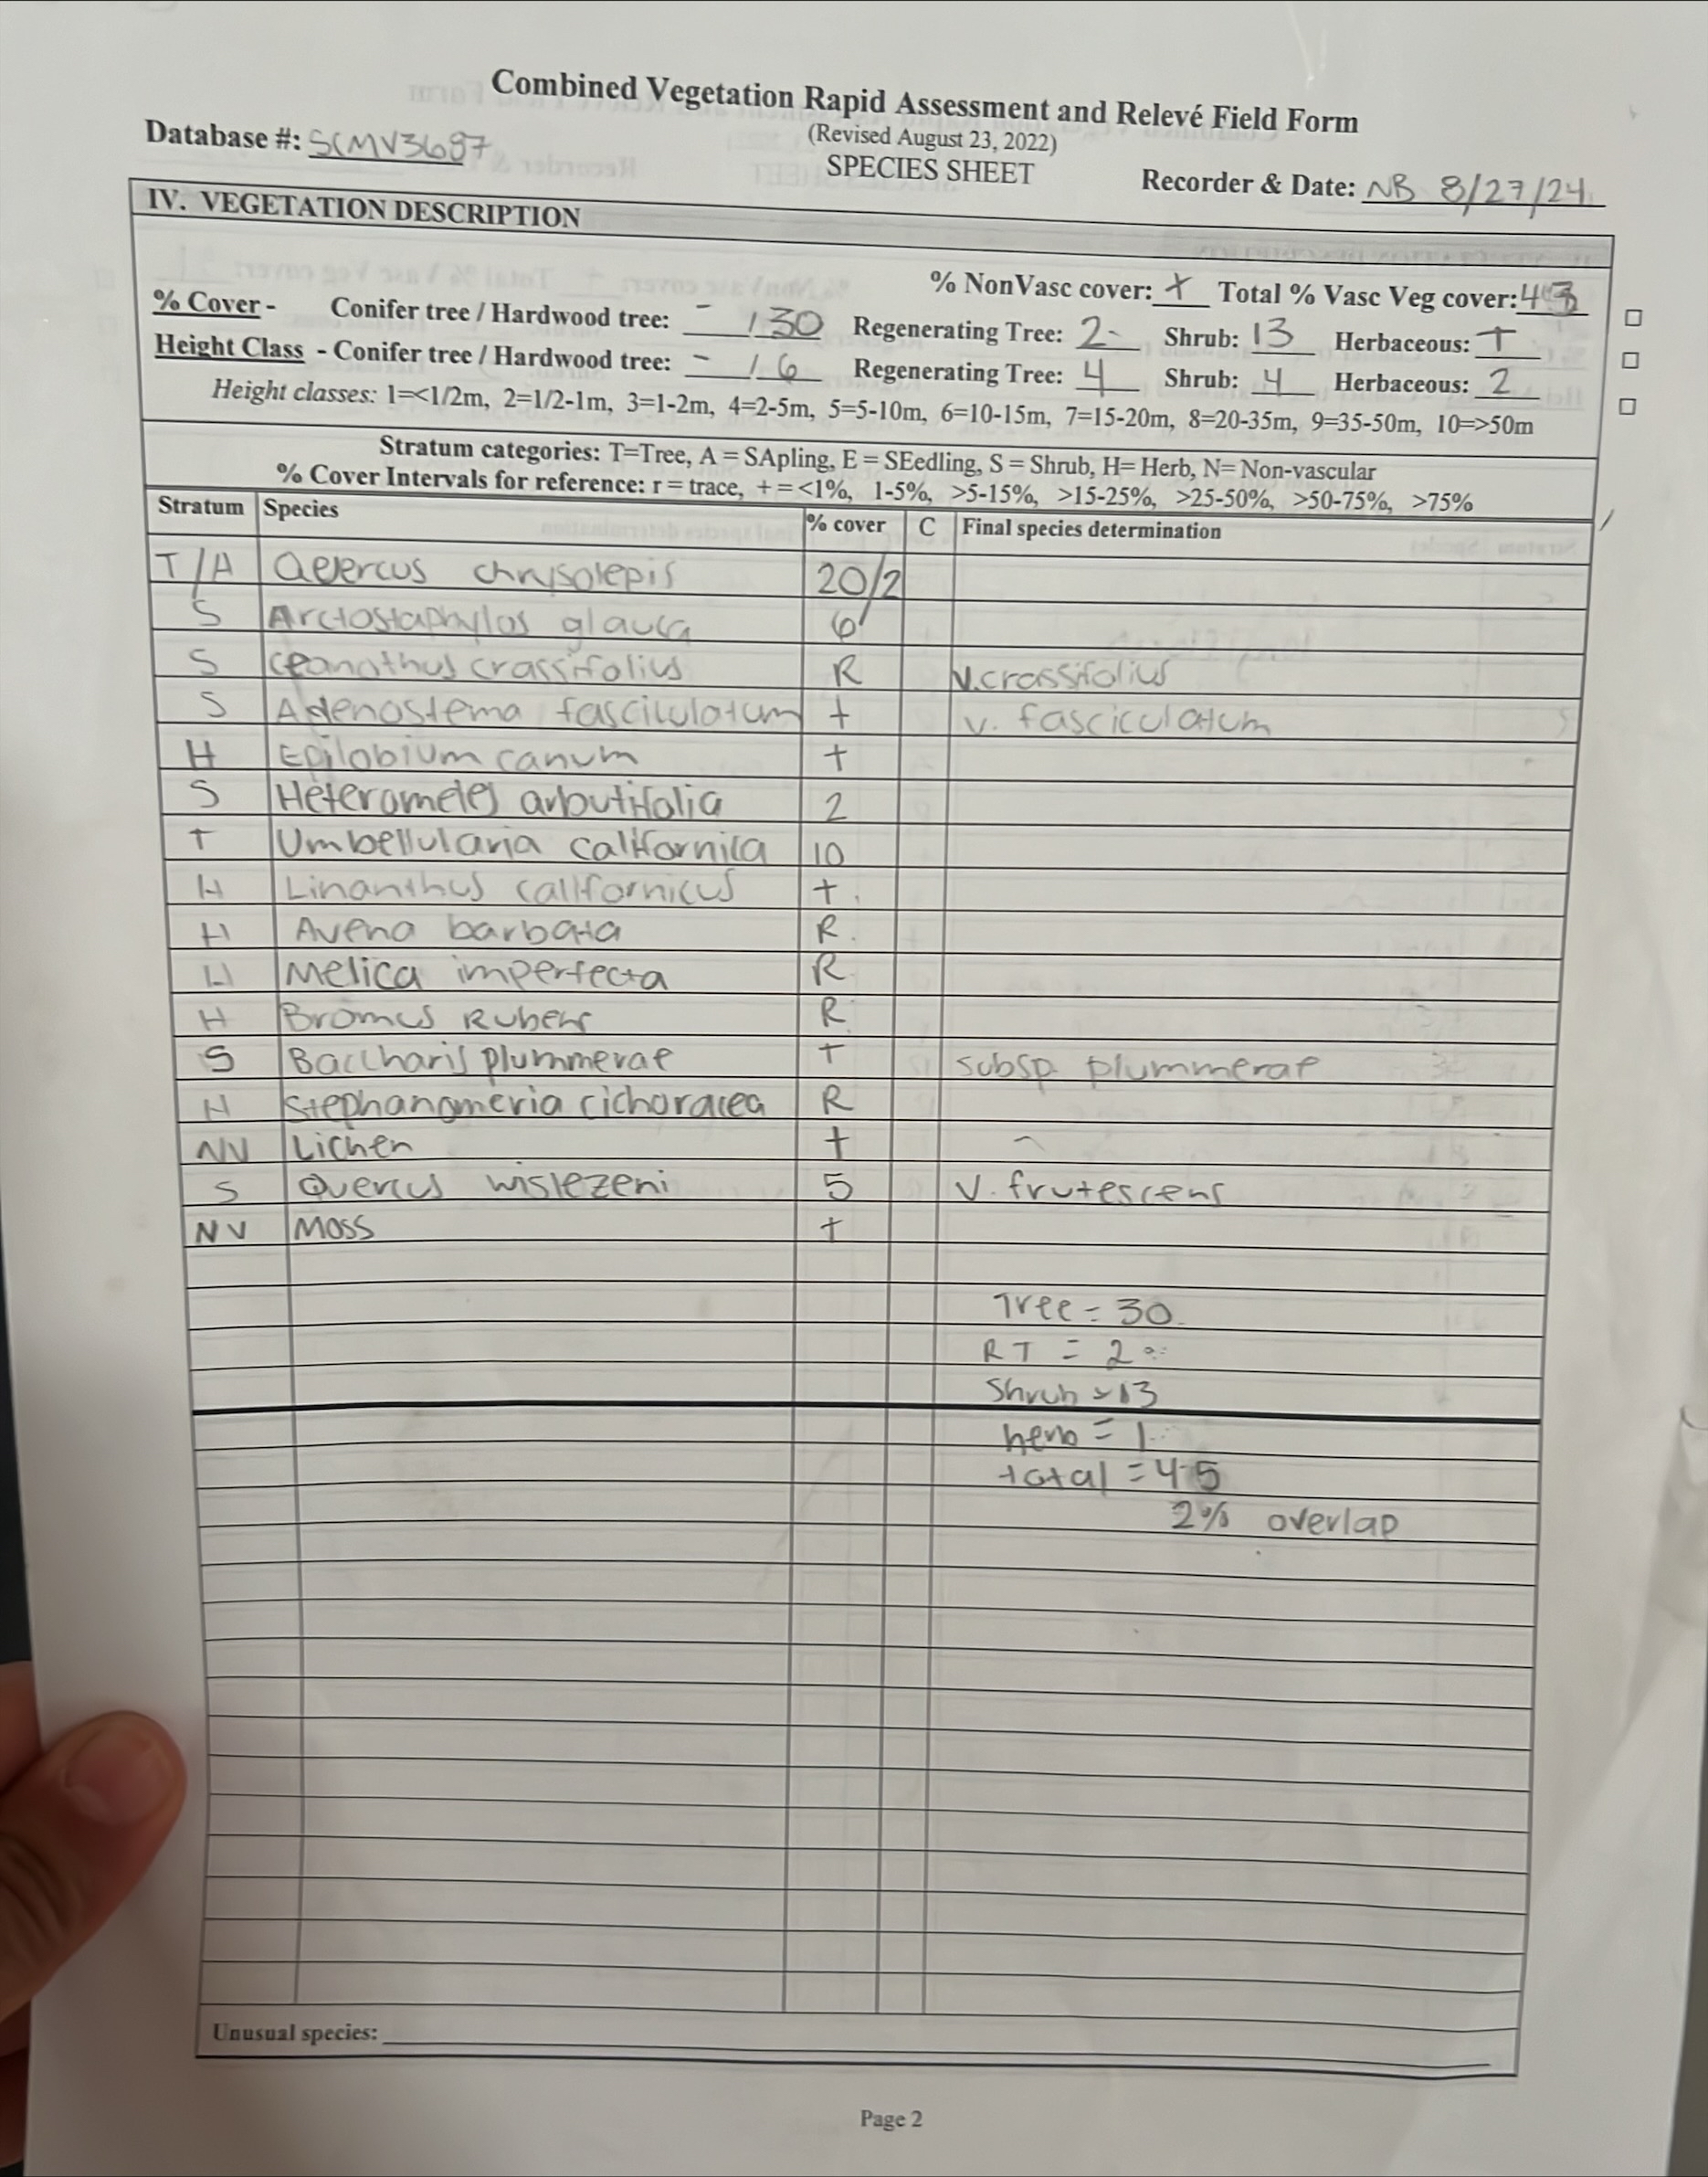 Combined Vegetation Rapid Assessment and Relevé Field Form
(Revised August 23, 2022)
Database #: SCMV3687
SPECIES SHEET
Recorder & Date: NB 8/27/24
IV. VEGETATION DESCRIPTION
% NonVasc cover: + Total % Vasc Veg cover: 43
% Cover - Conifer tree / Hardwood tree: - / 30 Regenerating Tree: 2 Shrub: 13 Herbaceous: +
Height Class - Conifer tree / Hardwood tree: - / 6 Regenerating Tree: 4 Shrub: 4 Herbaceous: 2
Height classes: 1=<1/2m, 2=1/2-1m, 3=1-2m, 4=2-5m, 5=5-10m, 6=10-15m, 7=15-20m, 8=20-35m, 9=35-50m, 10=>50m
Stratum categories: T=Tree, A = SApling, E = SEedling, S = Shrub, H= Herb, N= Non-vascular
% Cover Intervals for reference: r = trace, + = <1%, 1-5%, >5-15%, >15-25%, >25-50%, >50-75%, >75%
Stratum Species % cover C Final species determination
T/A Quercus chrysolepis 20/2
S Arctostaphylos glauca 6
S Ceanothus crassifolius R v. crassifolius
S Adenostema fasciculatum + v. fasciculatum
H Epilobium canum +
S Heterometes arbutifolia 2
T Umbellularia californica 10
H Linanthus californicus +
H Avena barbata R
H Melica imperfecta R
H Bromus Rubens R
S Baccharis plummerae + subsp. plummerae
H Stephanomeria cichoracea R
NV Lichen +
S Quercus wislezeni 5 v. frutescens
NV Moss +
Tree = 30
RT = 2
Shrub = 13
herb = 1
total = 45
2% overlap
Unusual species:
Page 2